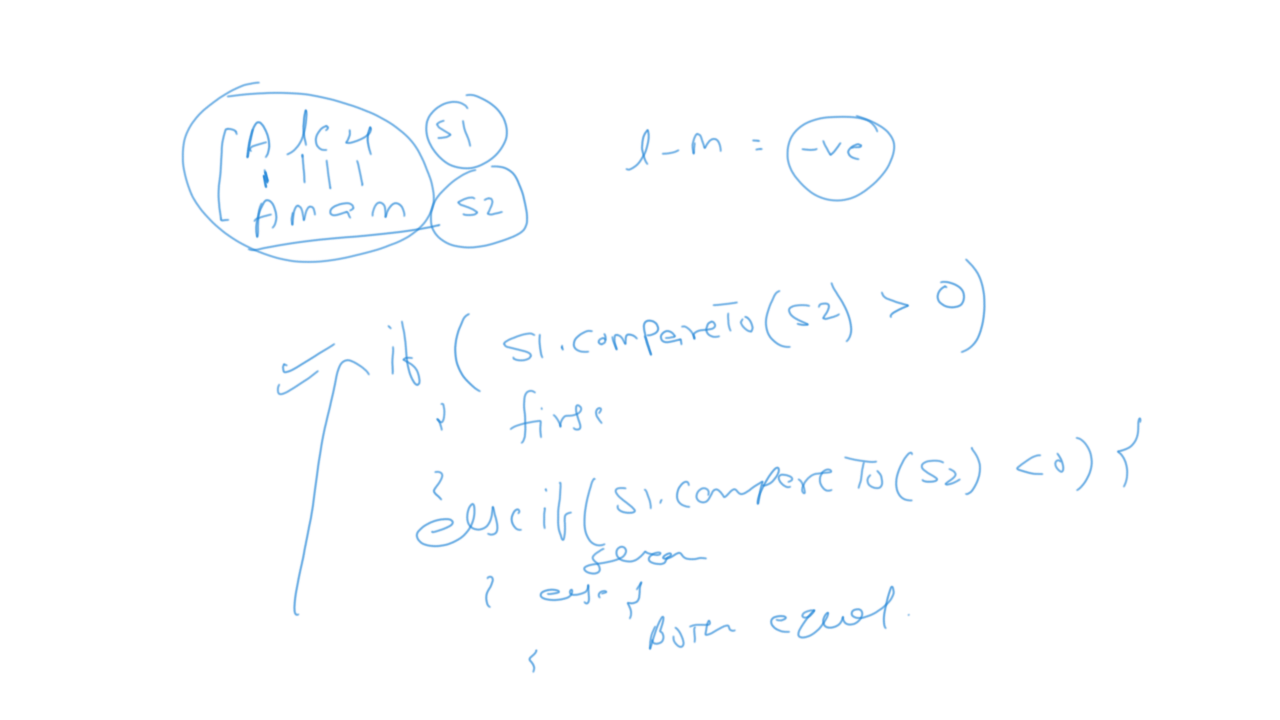 Alcu S1
Aman S2
l - m = -ve
if ( S1.compareTo(S2) > 0)
{ first
}
else if( S1.compareTo(S2) <0) {
} else {
Both equal.
}